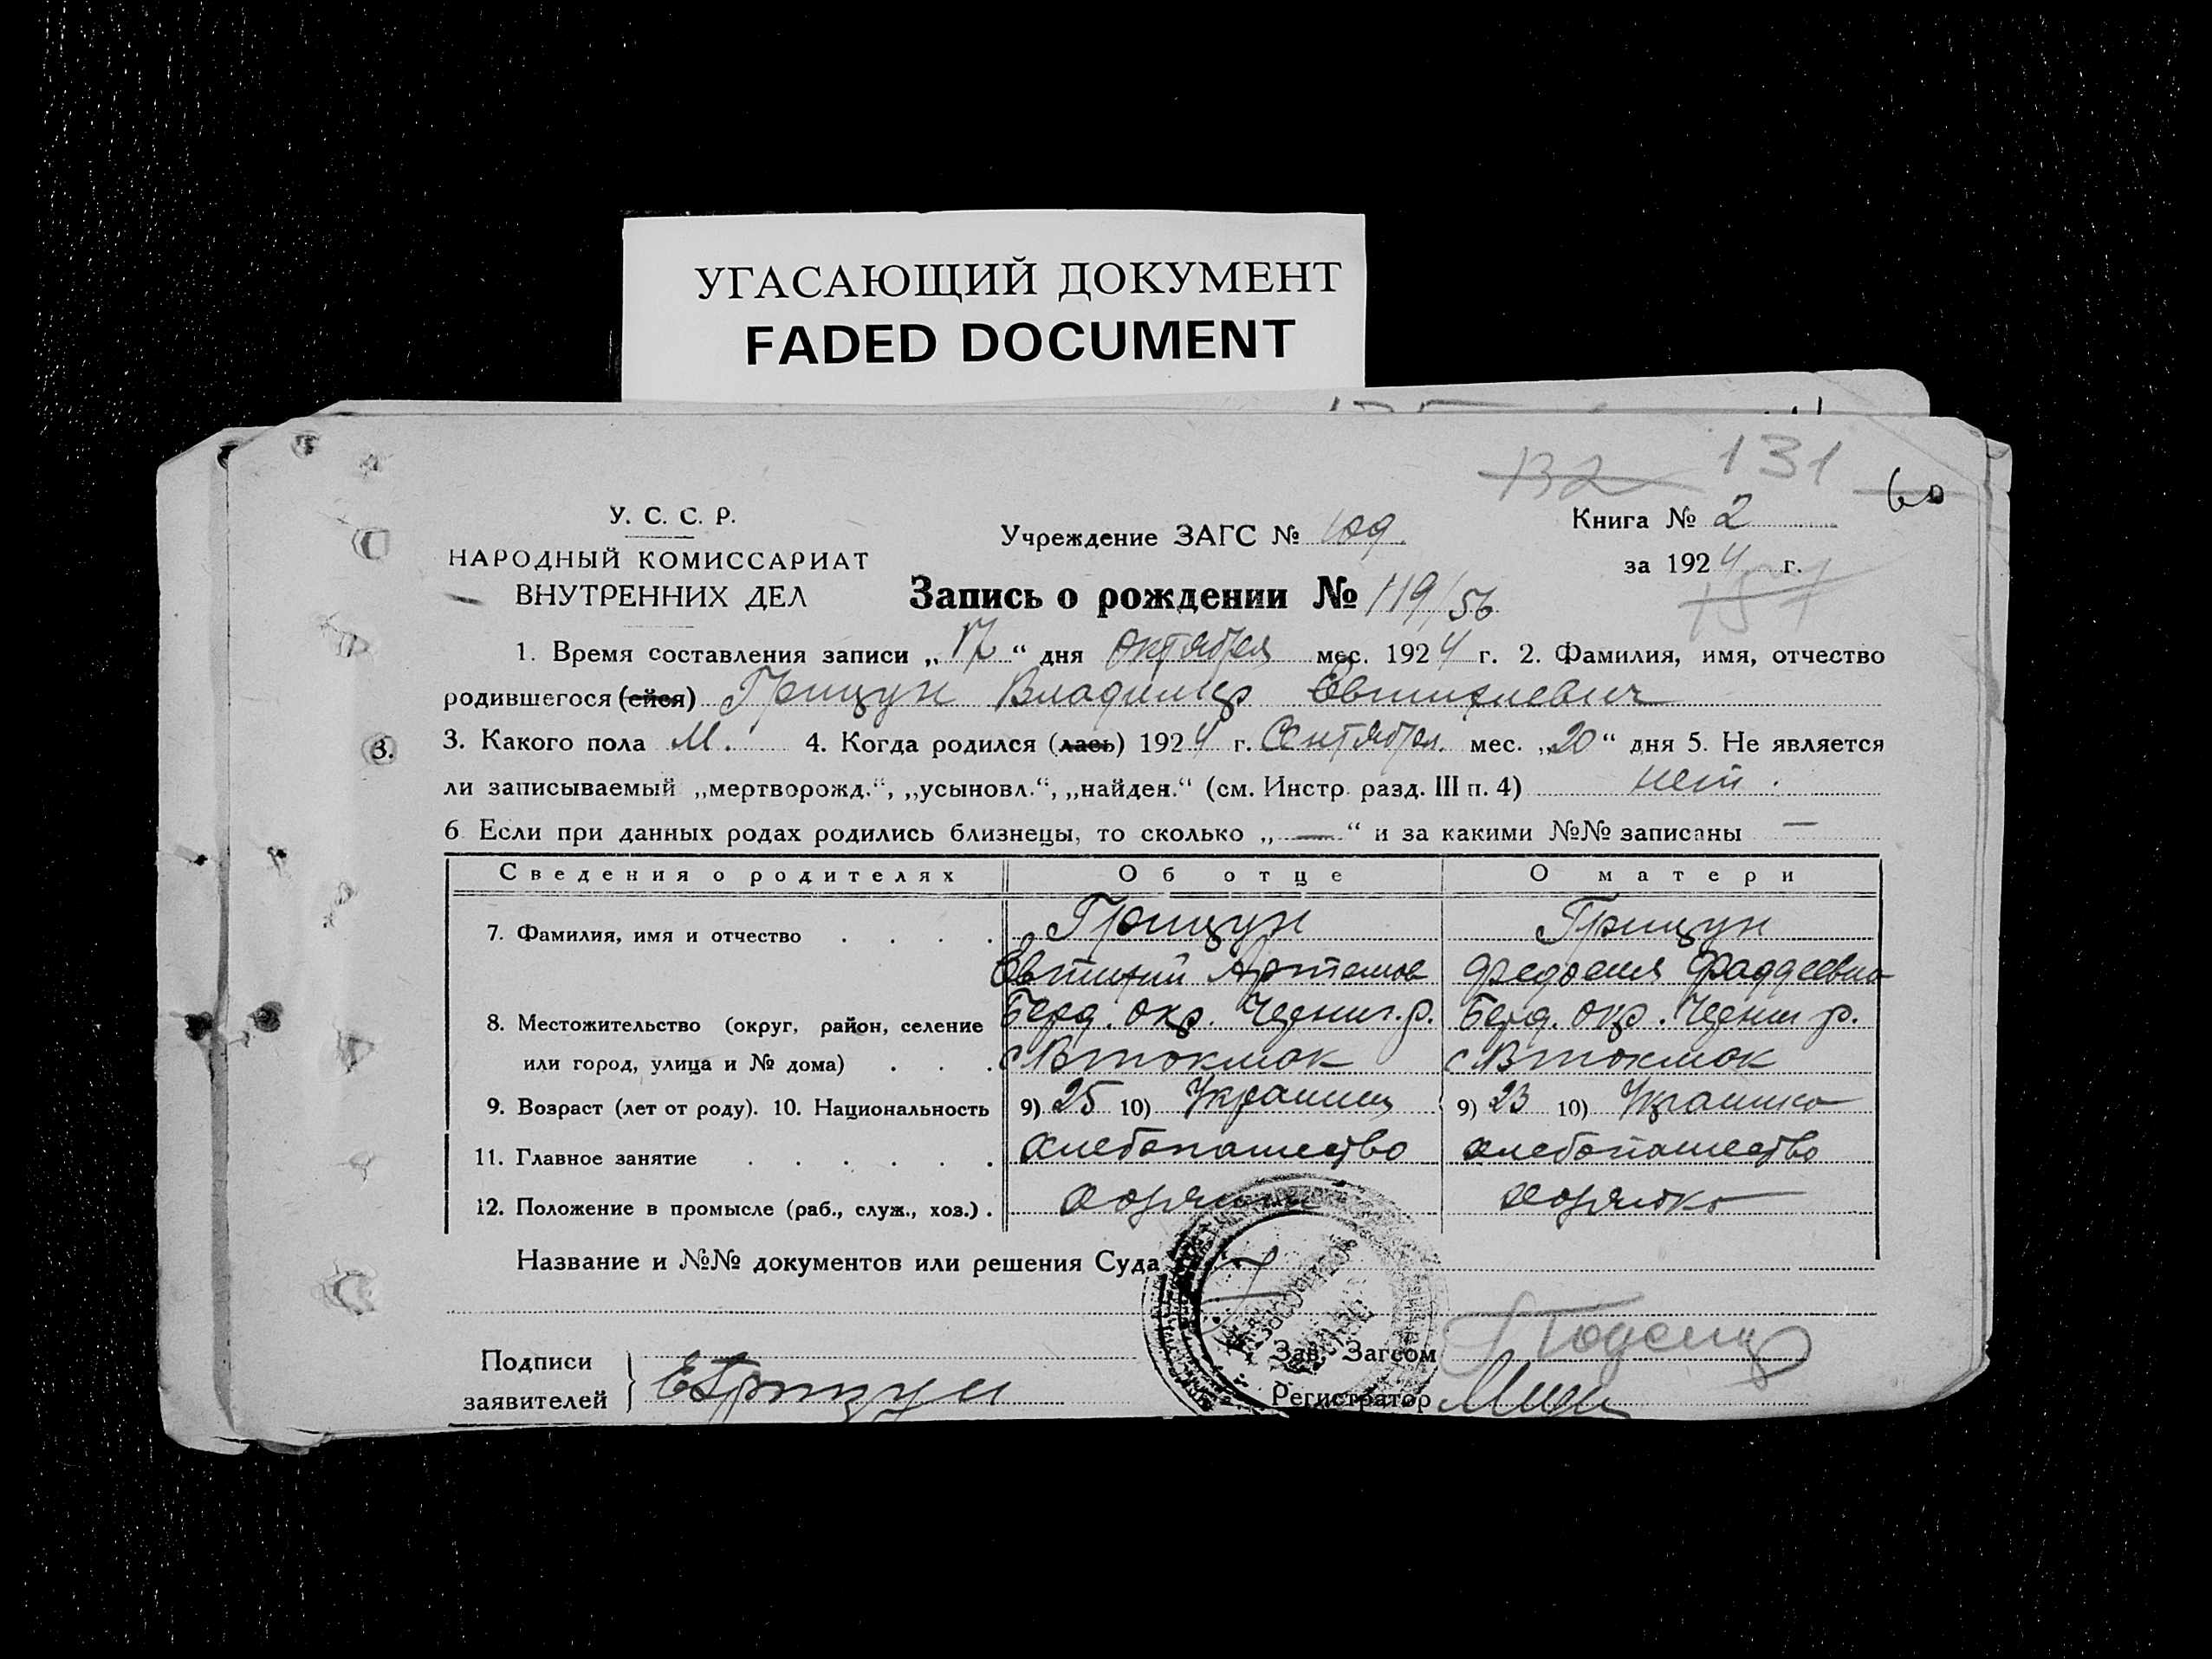 УГАСАЮЩИЙ ДОКУМЕНТ
FADED DOCUMENT
132 131 60
У. С. С. Р.
НАРОДНЫЙ КОМИССАРИАТ
ВНУТРЕННИХ ДЕЛ
Учреждение ЗАГС № 109.
Книга № 2
за 1924 г.
157
Запись о рождении № 119/56
1. Время составления записи „ 17 “ дня Октября мес. 1924 г. 2. Фамилия, имя, отчество
родившегося (ейся) Грицун Владимир Евтихиевич
3. Какого пола М. 4. Когда родился (лась) 1924 г. Сентября мес. „20“ дня 5. Не является
ли записываемый „мертворожд.“, „усыновл.“, „найден.“ (см. Инстр. разд. III п. 4) нет.
6 Если при данных родах родились близнецы, то сколько „ — “ и за какими №№ записаны —
Сведения о родителях Об отце О матери
7. Фамилия, имя и отчество . . . . Грицун Грицун
Евтихий Артемов Федосия Фаддеевна
8. Местожительство (округ, район, селение Берд. окр. Черниг. р. Берд. окр. Черниг р.
или город, улица и № дома) . . . с Втокмак с Втокмак
9. Возраст (лет от роду). 10. Национальность 9) 25 10) Украинец 9) 23 10) Украинка
11. Главное занятие . . . . . . Хлебопашество хлебопашество
12. Положение в промысле (раб., служ., хоз.) .
Название и №№ документов или решения Суда
Подписи
заявителей } ЕГрицун
Зав. Загсом
Регистратор